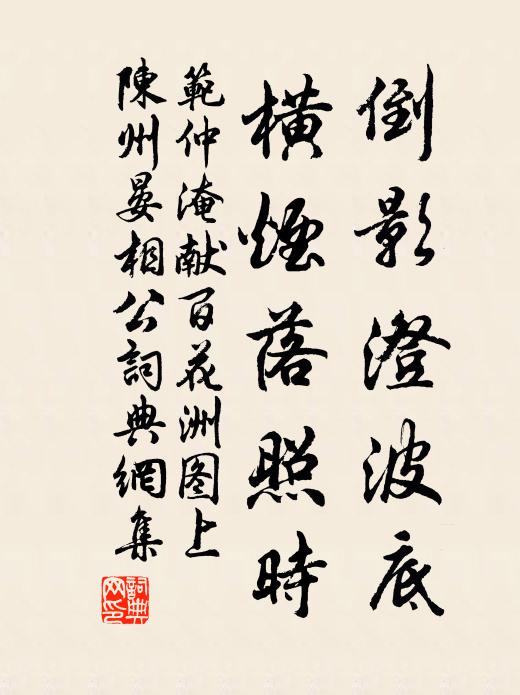 倒影澄波底
横煙落照時
範仲淹献百花洲图上
陳州晏相公詞典網集
詞典網印